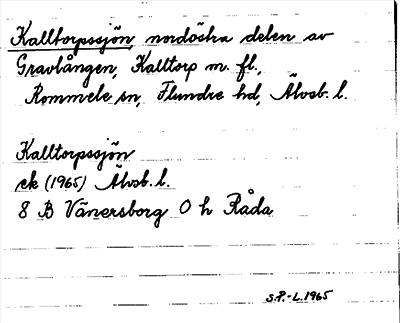 Kalltorpssjön, nordöstra delen av
Gravlången, Kalltorp m. fl.,
Rommele sn, Flundre hd, Älvsb. l.
Kalltorpssjön
ek (1965) Älvsb. l.
8 B Vänersborg O h Råda
S.P.-L. 1965